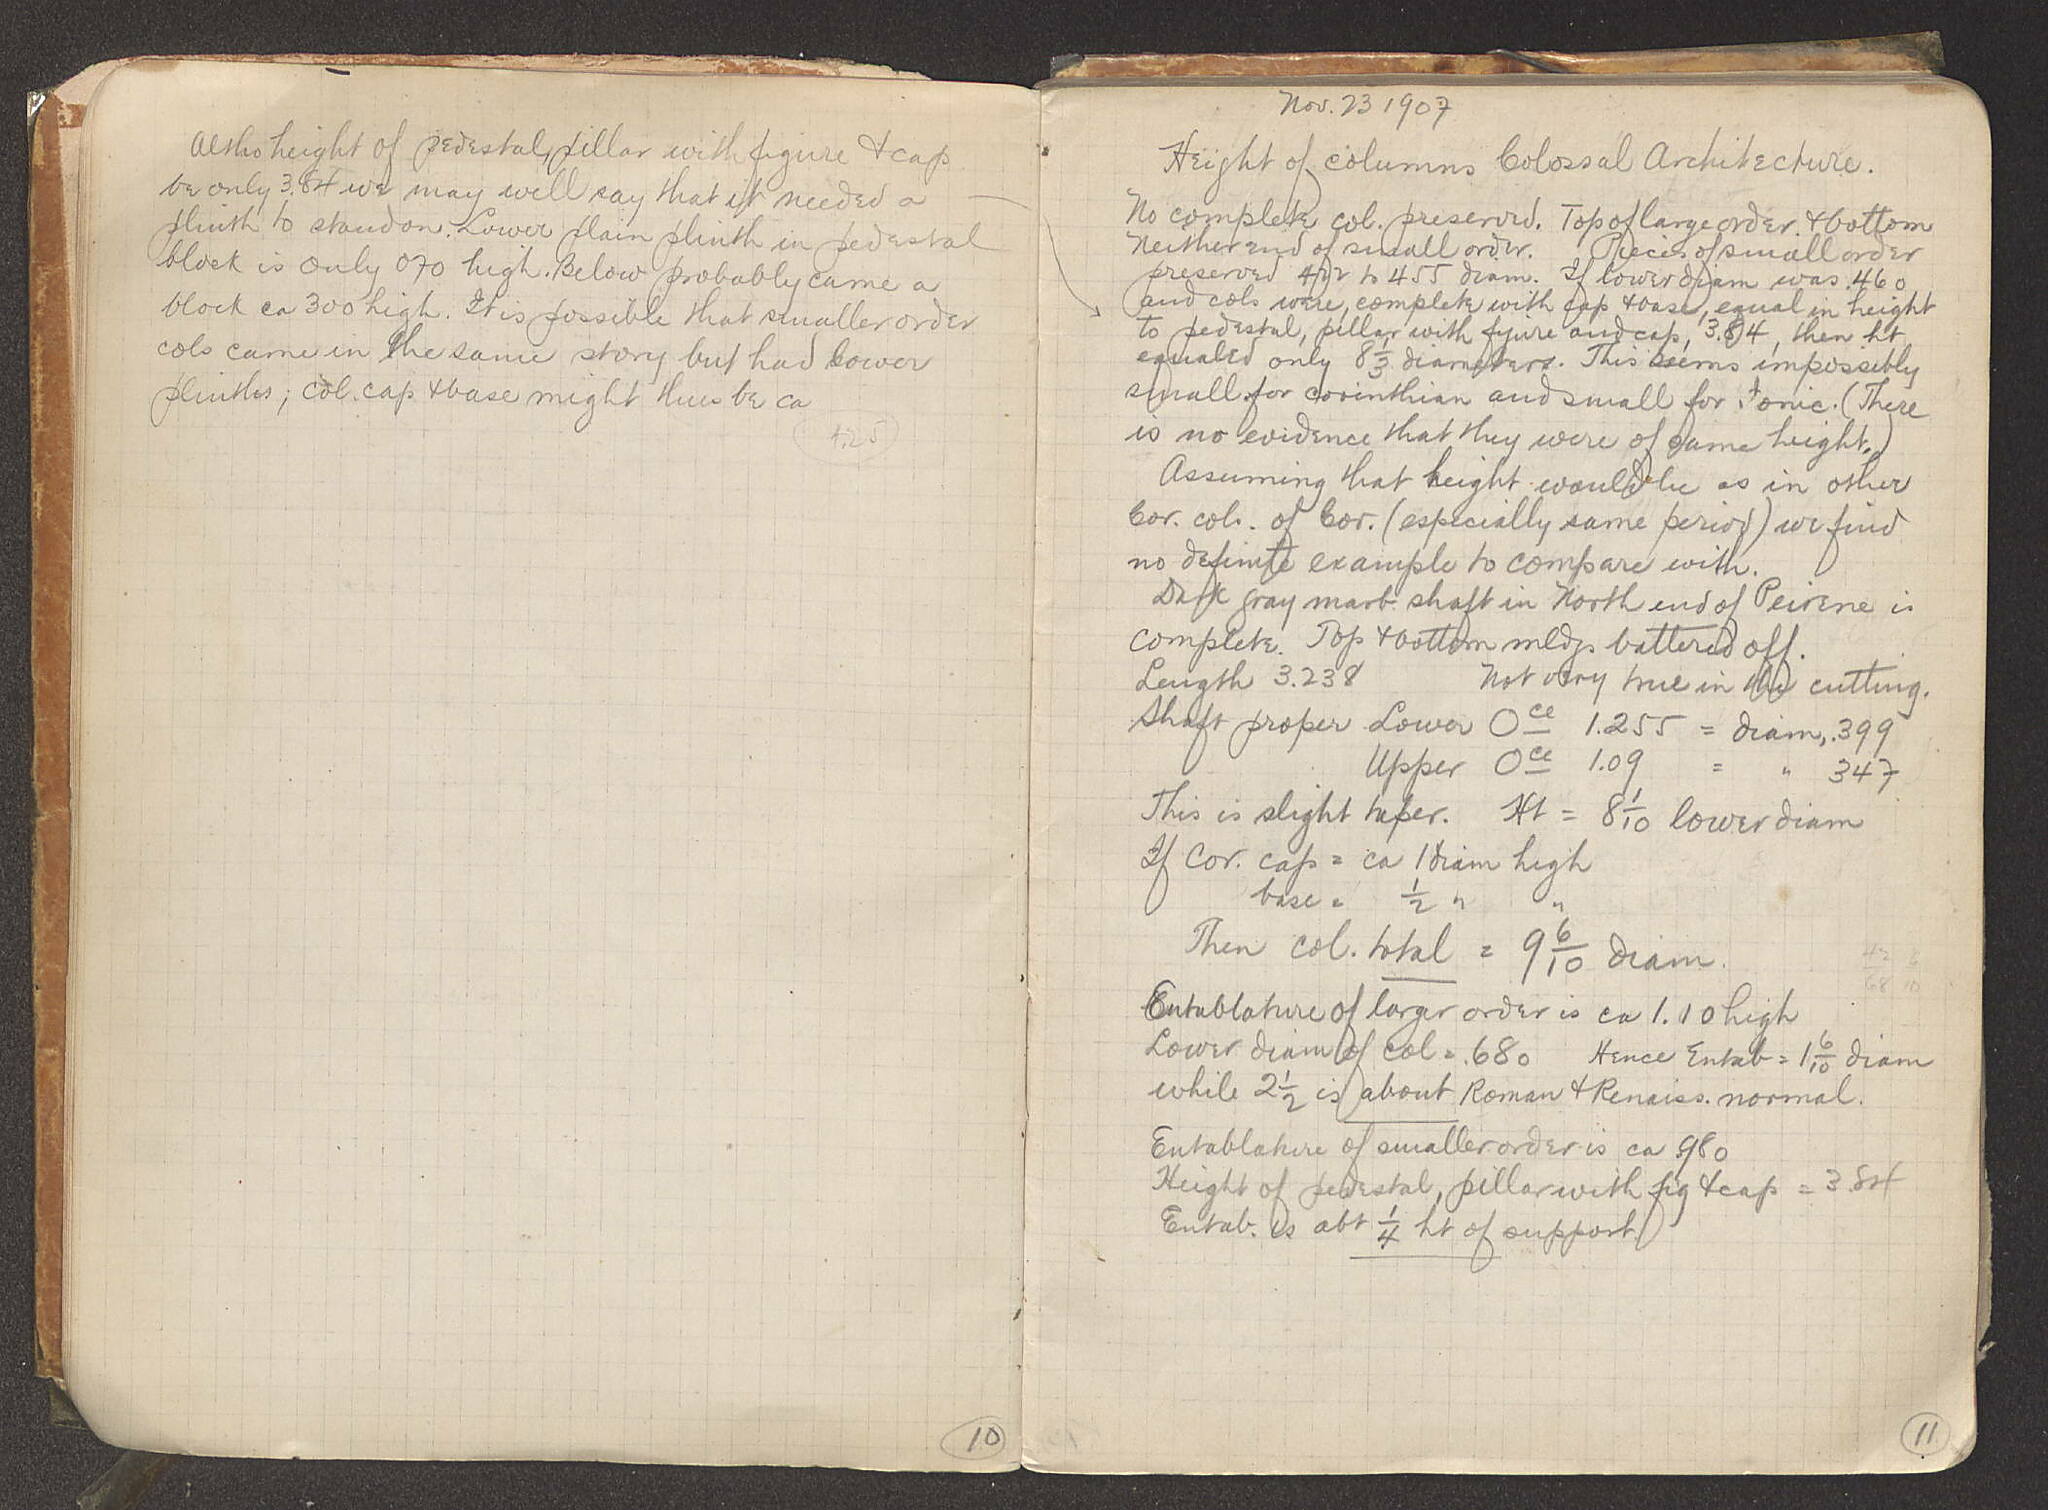 Altho height of pedestal, pillar with figure & cap
be only 3.84 we may well say that it needed a
plinth to stand on. Lower plain plinth in pedestal
block is only 070 high. Below probably came a
block ca 300 high. It is possible that smaller order
cols came in the same story but had lower
plinths; col. cap & base might thus be ca
4.25
10
Nov. 23 1907
Height of columns Colossal Architecture.
No complete col. preserved. Top of large order & bottom
Neither end of small order. Pieces of small order
preserved to 455 diam. If lower diam was .460
and cols were, complete with cap & base, equal in height
to pedestal, pillar with figure and cap, 3.84, then ht
equaled only 8 1/3 diameters. This seems impossibly
small for corinthian and small for Ionic. (There
is no evidence that they were of same height.)
Assuming that height would be as in other
Cor. cols. of Cor. (especially same period) we find
no definite example to compare with.
Dark gray marb. shaft in North end of Peirene is
complete. Top & bottom mldgs battered off.
Length 3.238 Not very true in the cutting.
Shaft proper Lower O ce 1.255 = diam, .399
Upper O ce 1.09 = " 347
This is slight taper. Ht = 8 1/10 lower diam
If Cor. cap = ca 1 diam high
base = 1/2 " "
Then col. total = 9 6/10 diam.
42 6
68 10
Entablature of larger order is ca 1.10 high
Lower diam of col = .680 Hence Entab = 1 6/10 diam
while 2 1/2 is about Roman & Renaiss. normal.
Entablature of smaller order is ca 980
Height of pedestal, pillar with fig & cap = 3.84
Entab. is abt 1/4 ht of support
11